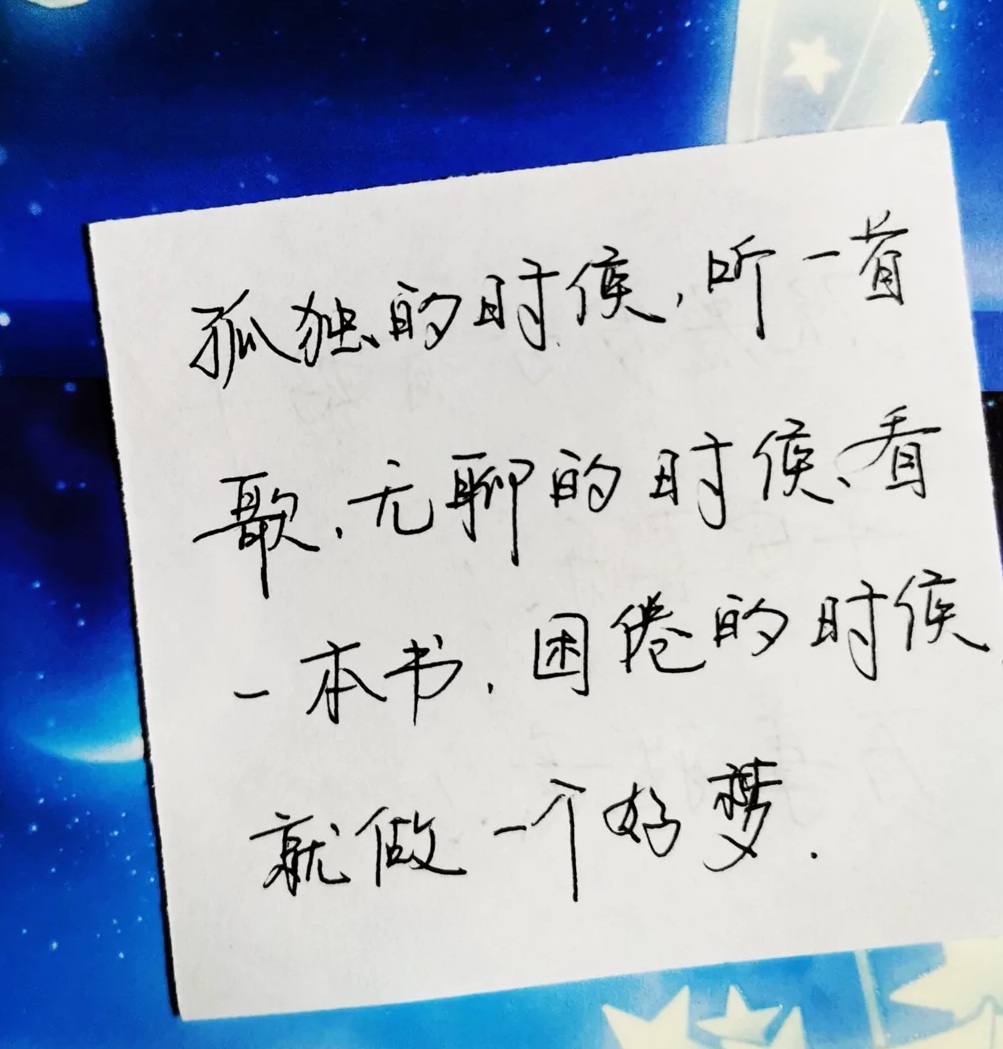 孤独的时候，听一首
歌，无聊的时候，看
一本书，困倦的时候
就做一个好梦.